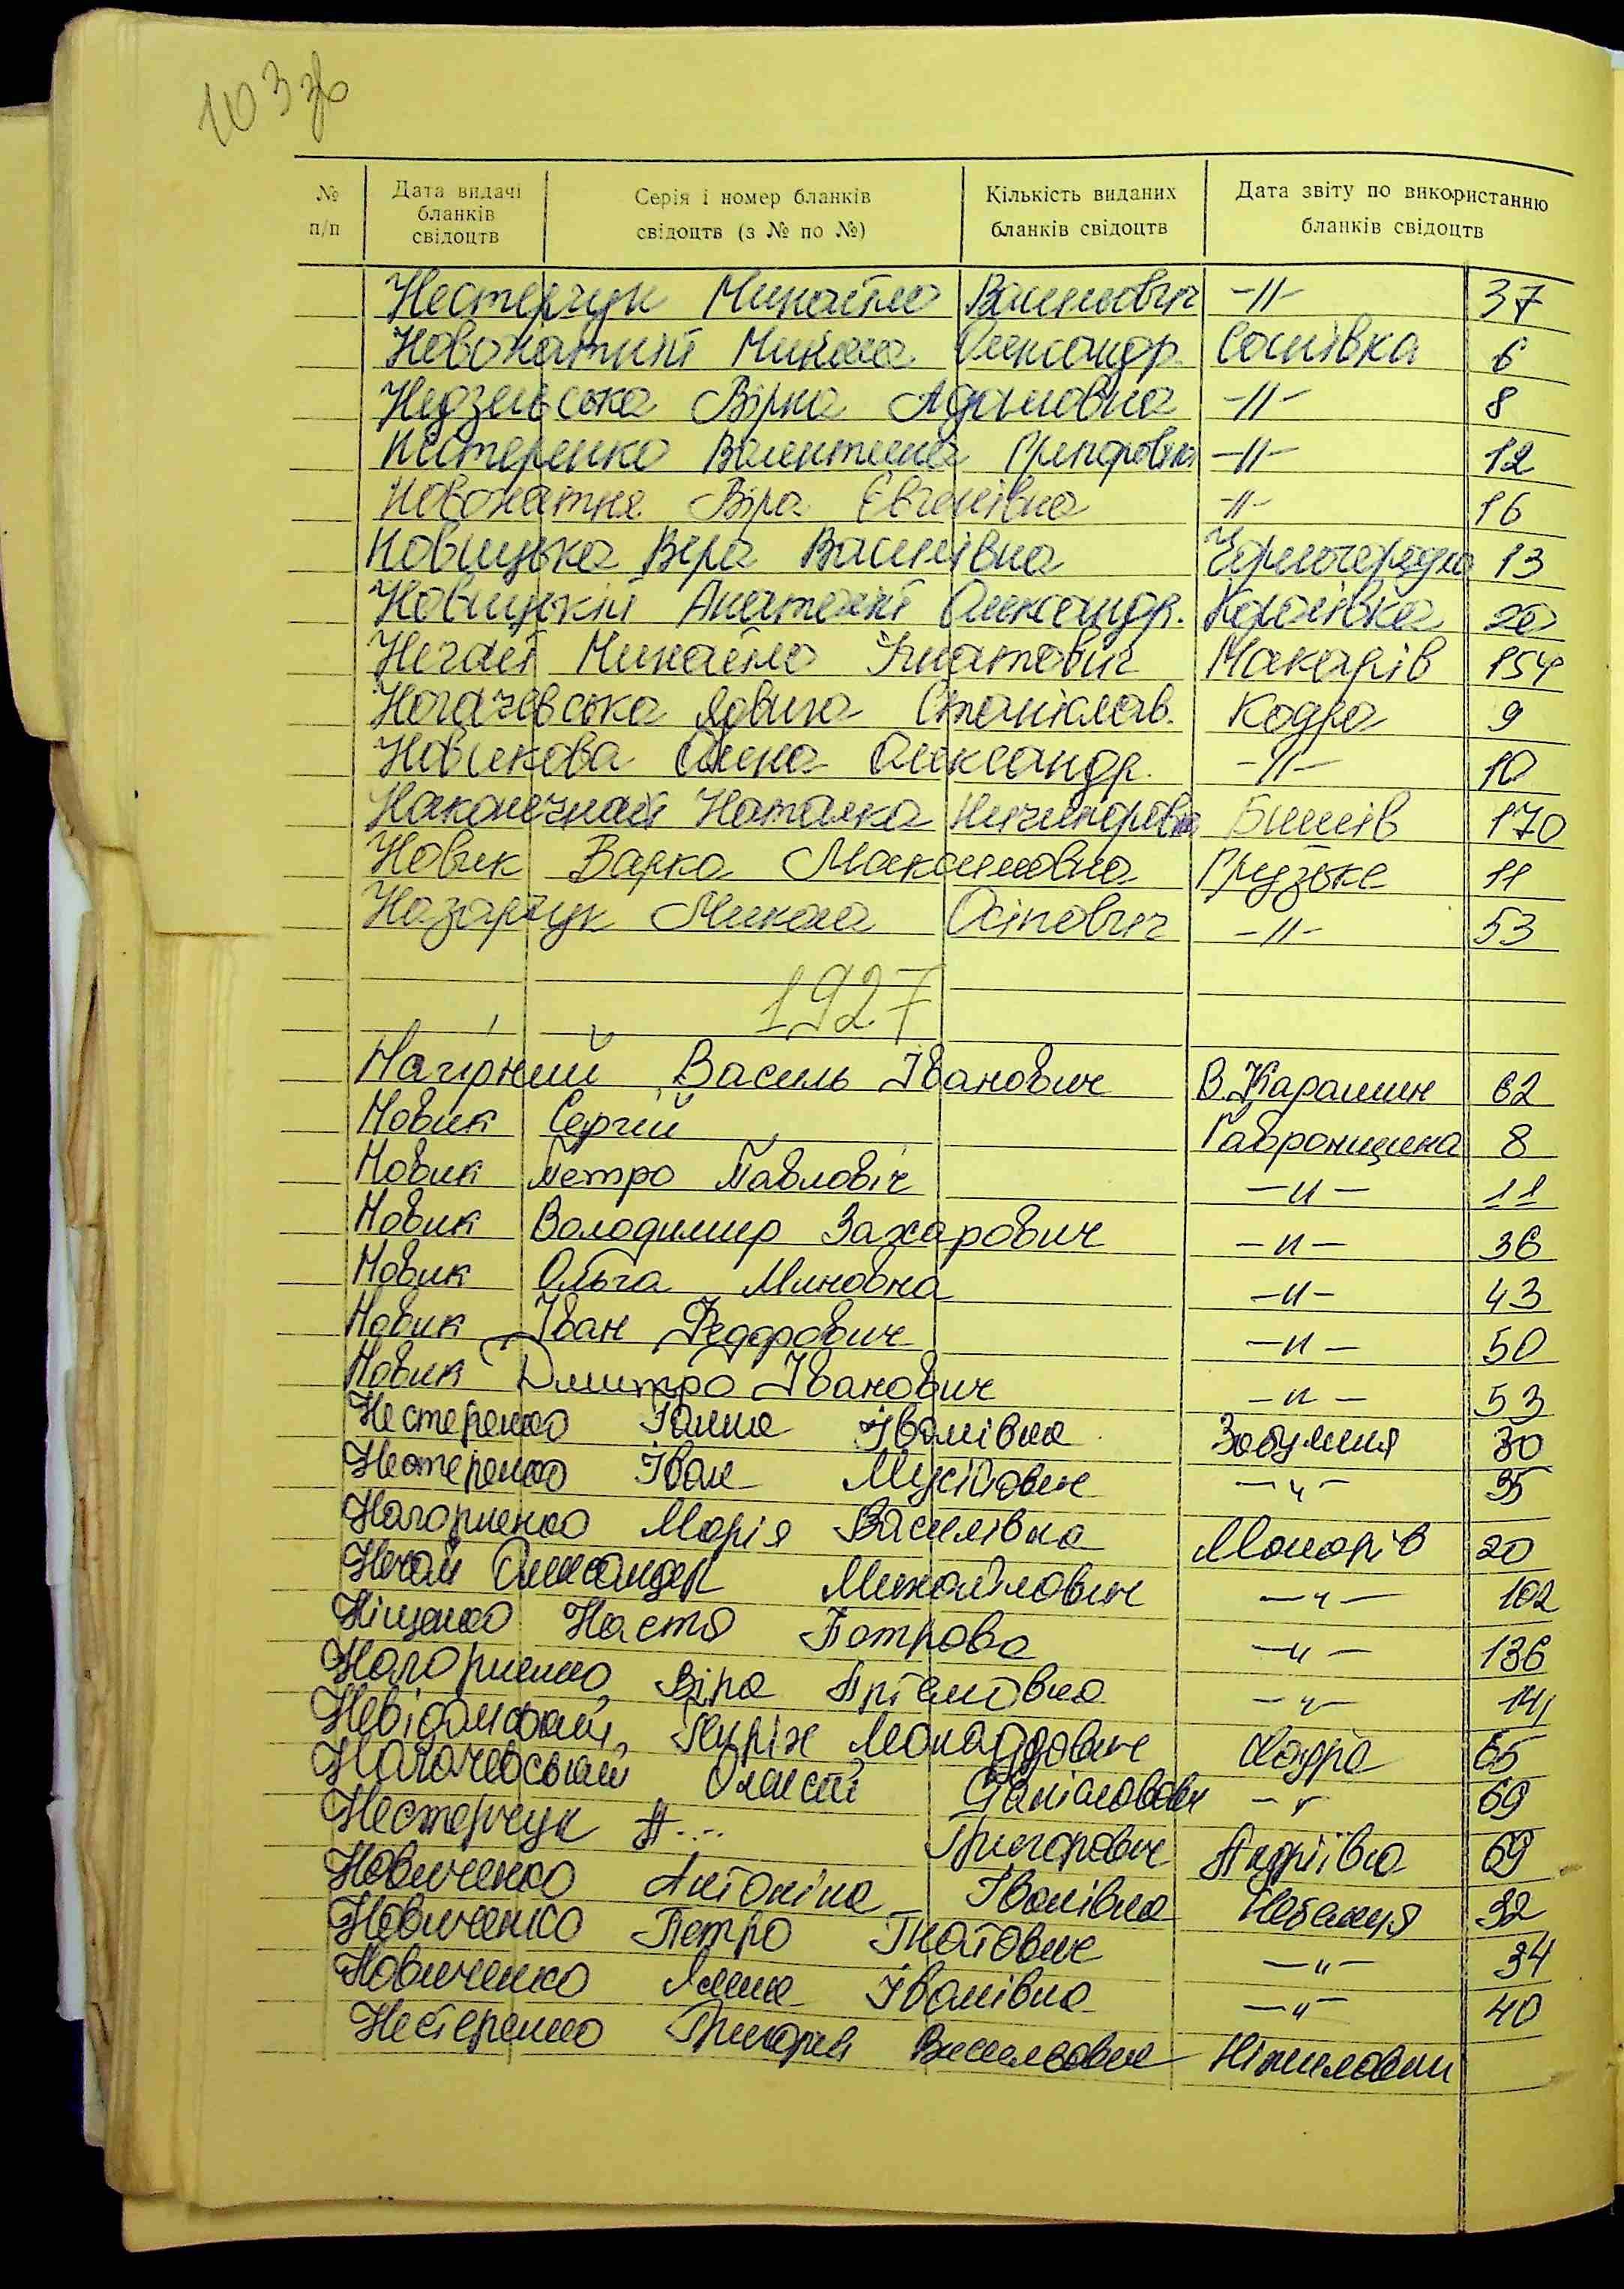 103 зв
№ п/п Дата видачі бланків свідоцтв Серія і номер бланків свідоцтв (з № по №) Кількість виданих бланків свідоцтв Дата звіту по використанню бланків свідоцтв
Нестерчук Михайло Васильович -//- 37
Новохатній Микола Олександр. Соснівка 6
Недзельська Вірка Адамовна -//- 8
Нестеренко Валентина Григоровна -//- 12
Новохатня Віра Євгенівна -//- 16
Новицька Віра Василівна Чорногородка 13
Новицький Анатолій Олександр. Королівка 20
Нечай Михайло Ігнатович Макарів 154
Ногачевська Ядвига Станіслав. Кодра 9
Новикова Олена Олександр. -//- 10
Наконечная Наталка Ничипоровна Бишів 170
Новик Варка Максимовна Грузьке 11
Назарчук Микола Осіпович -//- 53
1927
Нагірний Василь Іванович В.Карашин 62
Новик Сергій Гавронщина 8
Новик Петро Павловіч -//- 11
Новик Володимир Захарович -//- 36
Новик Ольга Миновна -//- 43
Новик Іван Федорович -//- 50
Новик Дмитро Іванович -//- 53
Нестеренко Ганна Іванівна Забуяння 30
Нестеренко Іван Мусійович -//- 35
Нагорненко Марія Василівна Макарів 20
Нечай Олександер Михайлович -//- 102
Ніщенко Настя Петрова -//- 136
Нагорненко Віра Артемовна -//- 141
Генріх Кодра 65
Ногачевський -//- 69
Нестерчук А... Григорович Андріївка 69
Новиченко Антоніна Іванівна Небелиця 32
Новиченко Петро Гнатович -//- 34
Новиченко Ганна Іванівна -//- 40
Нестеренко Григорій Васильович Ніжиловичи